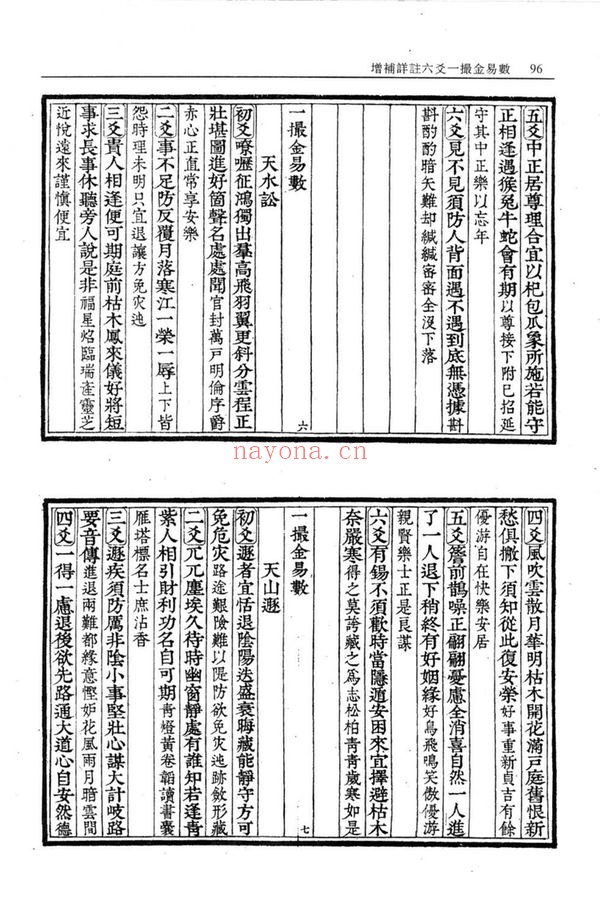 增補詳註六爻一撮金易數 96
五爻中正居尊理合宜以杞包瓜象所施若能守
正相逢遇猴兔牛蛇會有期以尊接下附巳招延
守其中正樂以忘年
六爻見不見須防人背面遇不遇到底無憑據斟
斟酌酌暗矢難却緘緘審審全沒下落
一撮金易數
六
天水訟
初爻嘹嚦征鴻獨出羣高飛羽翼更斜分雲程正
壯堪圖進好箇聲名處處聞官封萬戸明倫序爵
赤心正直常享安樂
二爻事不足防反覆月落寒江一榮一辱上下皆
怨時理未明只宜退讓方免災迍
三爻貴人相逢便可期庭前枯木鳳來儀好將短
事求長事休聽旁人說是非福星焰臨瑞産靈芝
近悅遠來謹愼便宜
nayona.cn
四爻風吹雲散月華明枯木開花滿戸庭舊恨新
愁俱撇下須知從此復安榮好事重新貞吉有餘
優游自在快樂安居
五爻簷前鵲噪正翩翩憂慮全消喜自然一人進
了一人退下稍終有好姻緣好鳥飛鳴笑傲優游
親賢樂士正是良謀
六爻有錫不須歡時當隱遁安困來宜擇避枯木
奈嚴寒得之莫誇藏之爲志松柏靑靑歲寒如是
一撮金易數
七
天山遯
初爻遯者宜恬退陰陽迭盛衰晦藏能靜守方可
免危災路途艱險難以隄防欲免災迍跡斂形藏
二爻兀兀塵埃久待時幽窗靜處有誰知若逢靑
紫人相引財利功名自可期靑燈黃卷韜讀書囊
雁塔標名士庶沾香
三爻遯疾須防厲非陰小事堅壯心謀大計岐路
要音傳進退兩難都緣意慳妬花風雨月暗雲間
四爻一得一慮退後欲先路通大道心自安然德